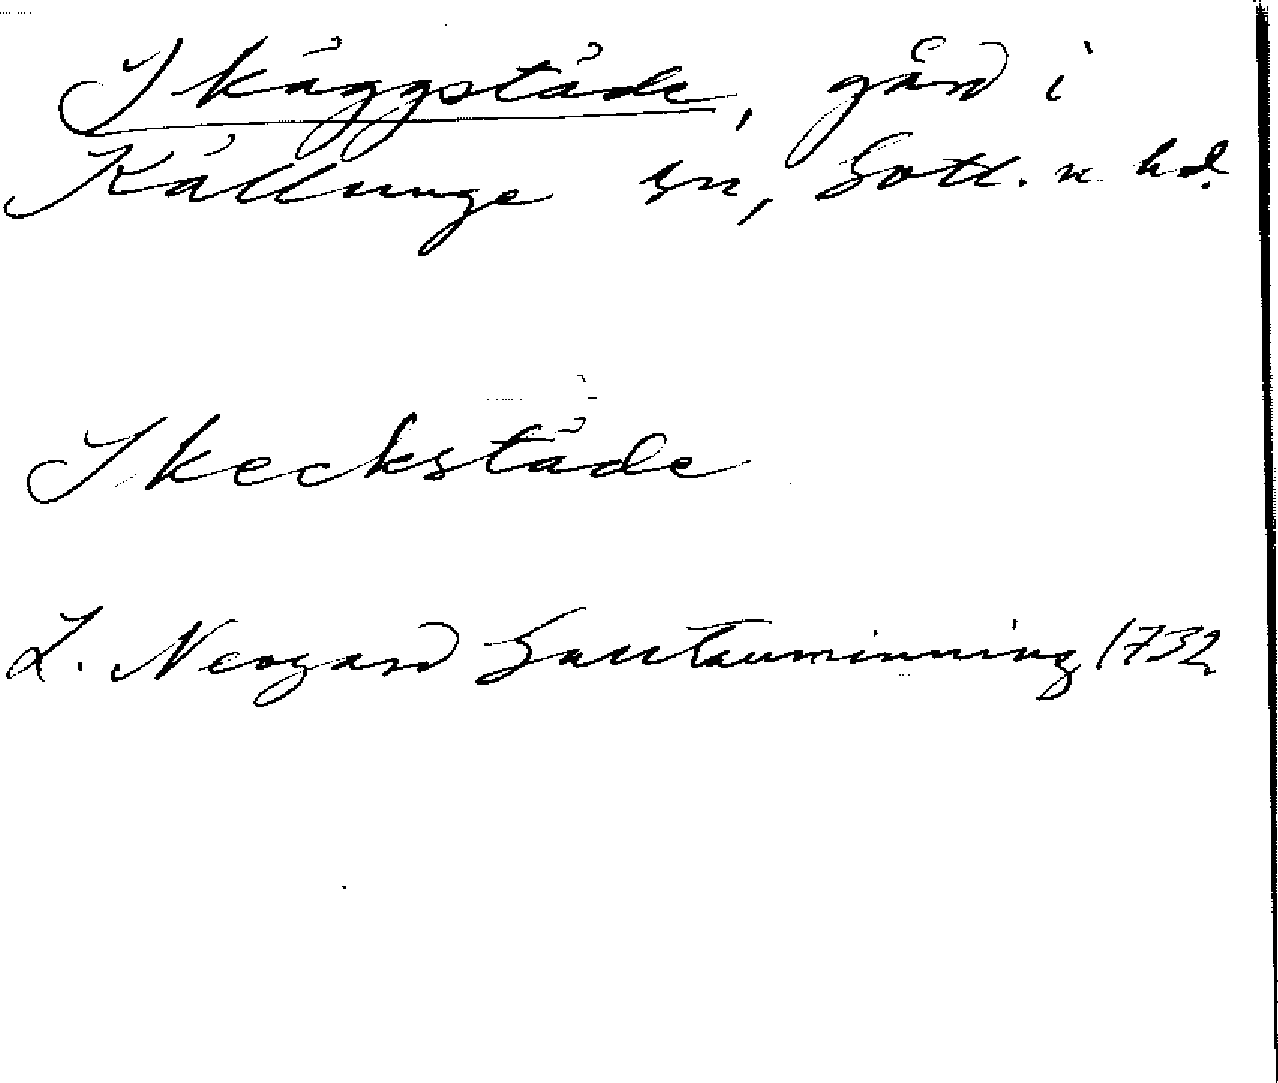 Skäggstäde, gård i
Källunge sn, Gotl. n hd.
Skeckstäde
L. Neogard Gautauminning 1732